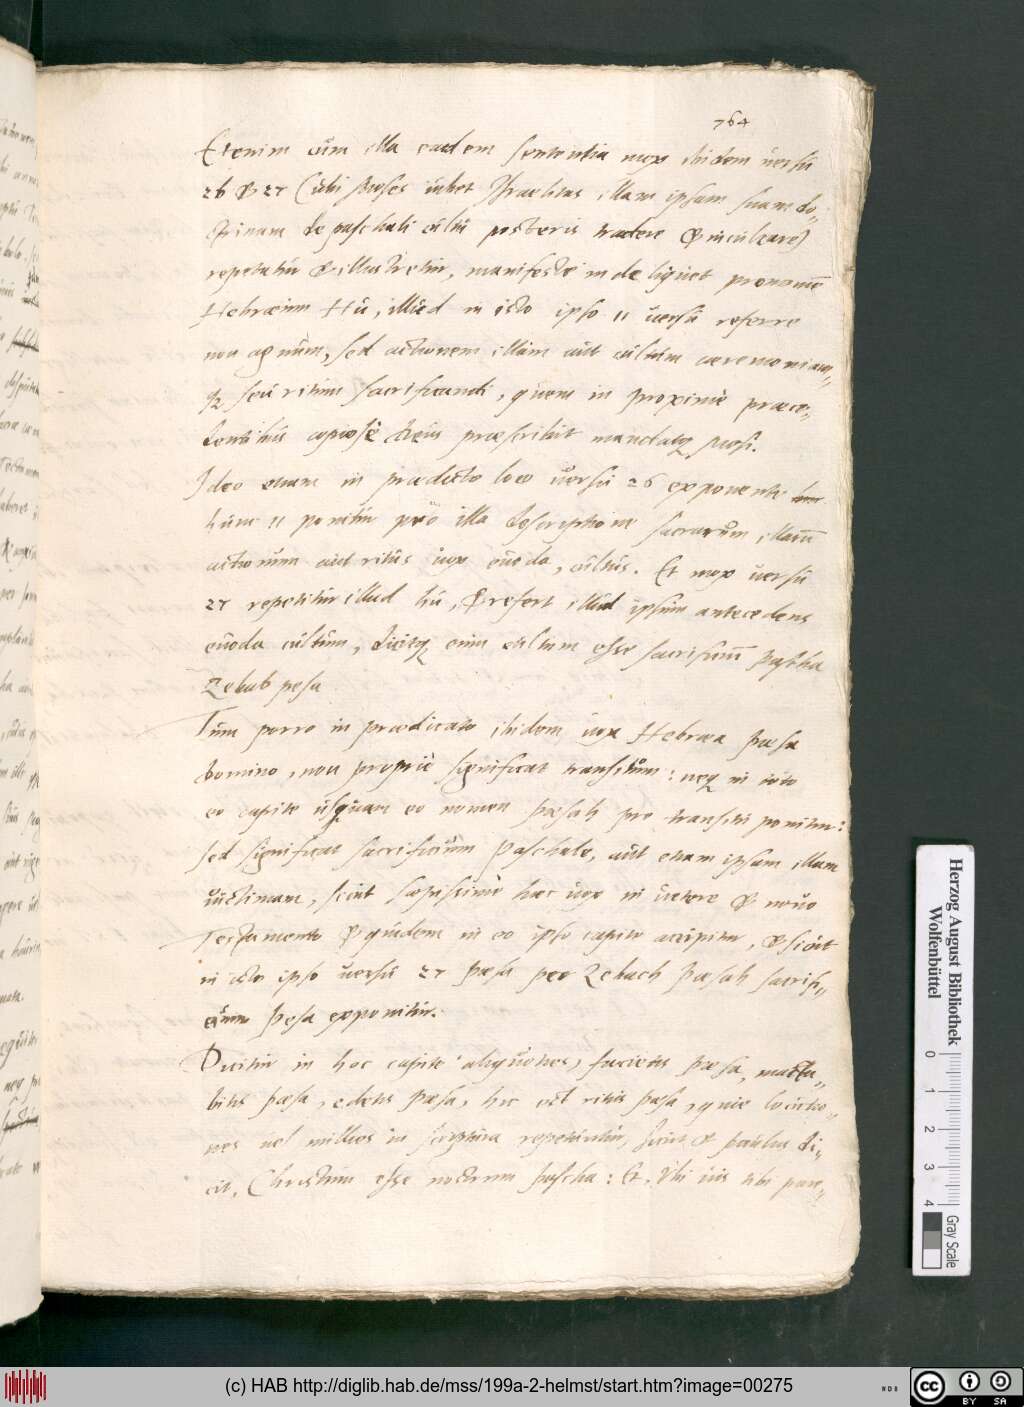 764
Etenim cum illa eadem sententia mox ibidem versu
26 & 27 (ubi Moses iubet Israelitas illam ipsam suam do-
ctrinam de paschali cultu posteris tradere & inculcare)
repetatur & illustretur, manifeste inde liquet pronomē
Hebraeum Hu, illud in isto ipso 11 versu referre
non agnum, sed actionem illam aut cultum ceremoniam-
q; seu ritum sacrificandi, quem in proxime praece-
dentibus copiose Deus praescribit mandatq; Mosi.
Ideo etiam in praedicto loco versu 26 exponente
hunc 11 ponitur pro illa descriptione sacrarum, illarū
actionum aut ritus vox euoda, cultus. Et mox versu
27 repetitur illud hu, & refert illud ipsum antecedens
euoda cultum, dicitq; enim cultum esse sacrificiū Pascha
Zebah pesa
Tum porro in praedicato ibidem vox Hebraea paesa
domino, non proprie significat transitum: neq; in toto
eo capite usquam eo nomen paesah pro transitu ponitur:
sed significat sacrificium Paschale, aut etiam ipsam illam
victimam, sicut saepissime haec vox in vetere & novo
Testamento & quidem in eo ipso capite accipitur, & sicut
in isto ipso versu 27 paesa per Zebach paesah sacrifi-
cium pesa exponitur.
Dicitur in hoc capite aliquoties, facietis paesa, macta-
bitis paesa, edetis paesa, hic est ritus paesa, quae locutio-
nes vel millies in scriptura repetuntur, sicut & paulus di-
cit, Christum esse nostrum pascha: Et, Ubi vis tibi pare-
Herzog August Bibliothek
Wolfenbüttel
0 1 2 3 4
Gray Scale
(c) HAB http://diglib.hab.de/mss/199a-2-helmst/start.htm?image=00275
cc BY SA